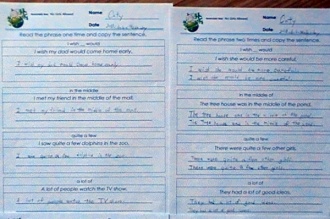 Name City
Date
Read the phrase one time and copy the sentence.
I wish ... would
I wish my dad would come home early.
I wish my dad would come home early
in the middle of
I met my friend in the middle of the mall.
I met my friend in the middle of the
quite a few
I saw quite a few dolphins in the zoo.
I saw quite a few in the zoo.
a lot of
A lot of people watch the TV show.
A lot of people watch the TV show.
Name City
Date
Read the phrase two times and copy the sentence.
I wish ... would
I wish she would be more careful.
I wish she would be more careful.
I wish she would be more careful.
in the middle of
The tree house was in the middle of the pond.
The tree house was in the middle of the pond.
The tree house was in the middle of the pond.
quite a few
There were quite a few other girls.
There were quite a few other girls.
There were quite a few other girls.
a lot of
They had a lot of good ideas.
They had a lot of good ideas.
They had a lot of good ideas.